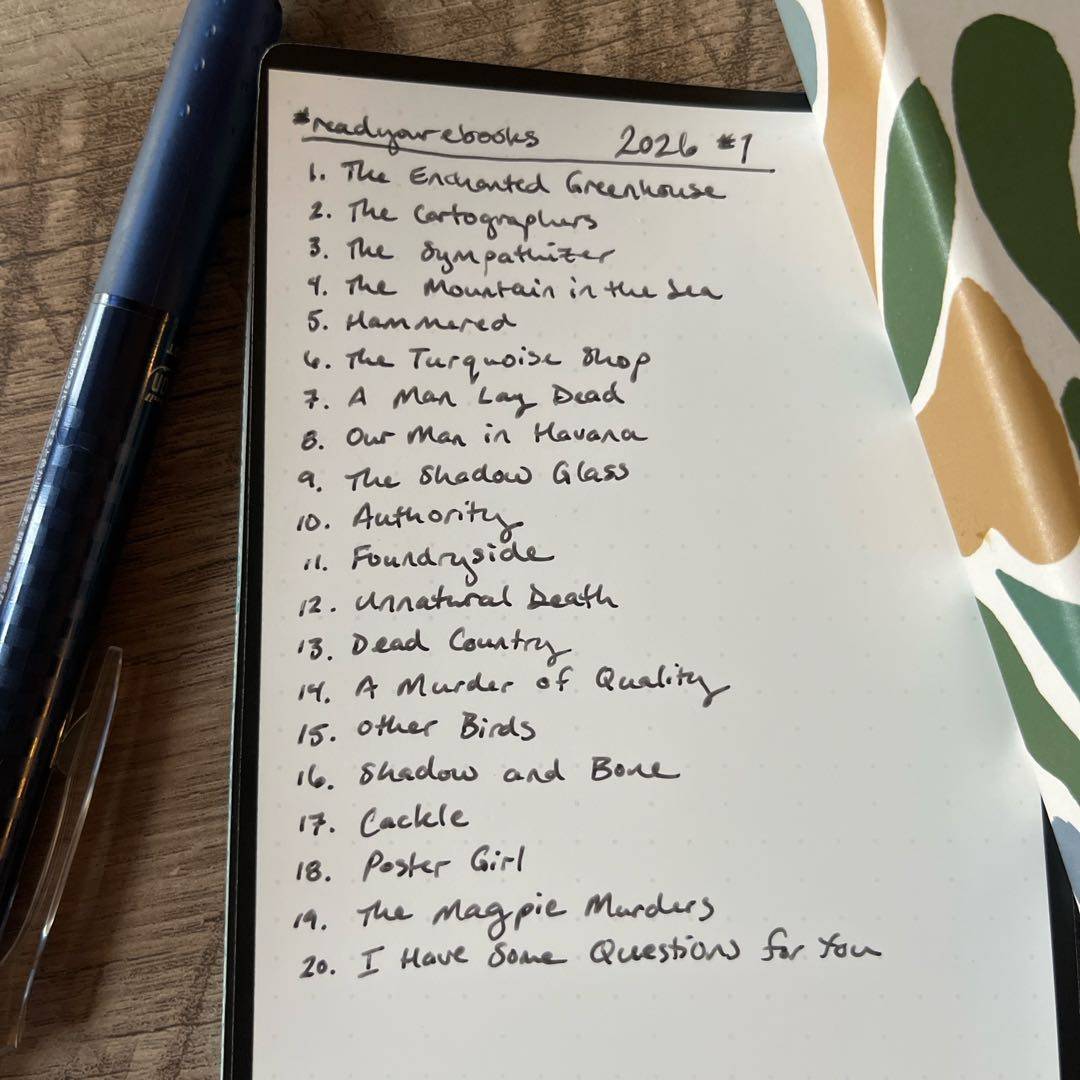 #readyourebooks 2026 #1
1. The Enchanted Greenhouse
2. The Cartographers
3. The Sympathizer
4. The Mountain in the Sea
5. Hammered
6. The Turquoise Shop
7. A Man Lay Dead
8. Our Man in Havana
9. The Shadow Glass
10. Authority
11. Foundryside
12. Unnatural Death
13. Dead Country
14. A Murder of Quality
15. Other Birds
16. Shadow and Bone
17. Cackle
18. Poster Girl
19. The Magpie Murders
20. I Have Some Questions for You